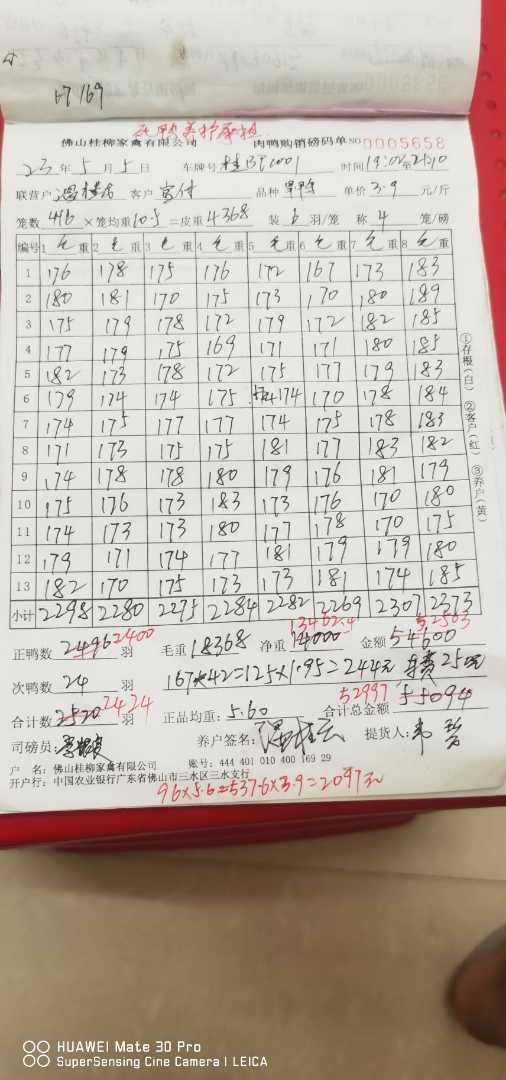 67 169
佛山桂柳家禽有限公司 肉鸭购销磅码单 NO 0005658
23年5月5日 车牌号 时间19:02至21:10
联营户 客户 品种 单价3.9元/斤
笼数416×笼均重10.5=皮重4368 装6羽/笼 称4笼/磅
编号 1毛重 2毛重 3毛重 4毛重 5毛重 6毛重 7毛重 8毛重
1 176 178 175 176 172 167 173 183
2 180 181 170 175 173 170 180 189
3 175 179 178 172 179 172 182 185
4 177 179 175 169 171 171 180 185
5 182 173 178 172 175 177 179 183
6 179 174 174 175 174 170 178 184
7 174 175 177 177 174 175 178 183
8 171 173 175 175 181 177 183 182
9 174 178 178 180 179 176 181 179
10 175 176 173 183 173 176 170 180
11 174 173 173 180 177 178 170 175
12 179 171 174 177 181 179 179 180
13 182 170 175 173 173 181 174 185
小计 2298 2280 2275 2284 2282 2269 2307 2373
①存根(白) ②客户(红) ③养户(黄)
13462.4 52503
正鸭数2496 2400羽 毛重18368 净重14000 金额54600
次鸭数24羽 167*42=125×1.95=244元 车费25元
52997
合计数2520 2424羽 正品均重:5.60 合计总金额55094
司磅员: 养户签名: 提货人:
户 名:佛山桂柳家禽有限公司 账号:444 401 010 400 169 29
开户行:中国农业银行广东省佛山市三水区三水支行
96×5.6=537.6×3.9=2097元
HUAWEI Mate 30 Pro
SuperSensing Cine Camera | LEICA